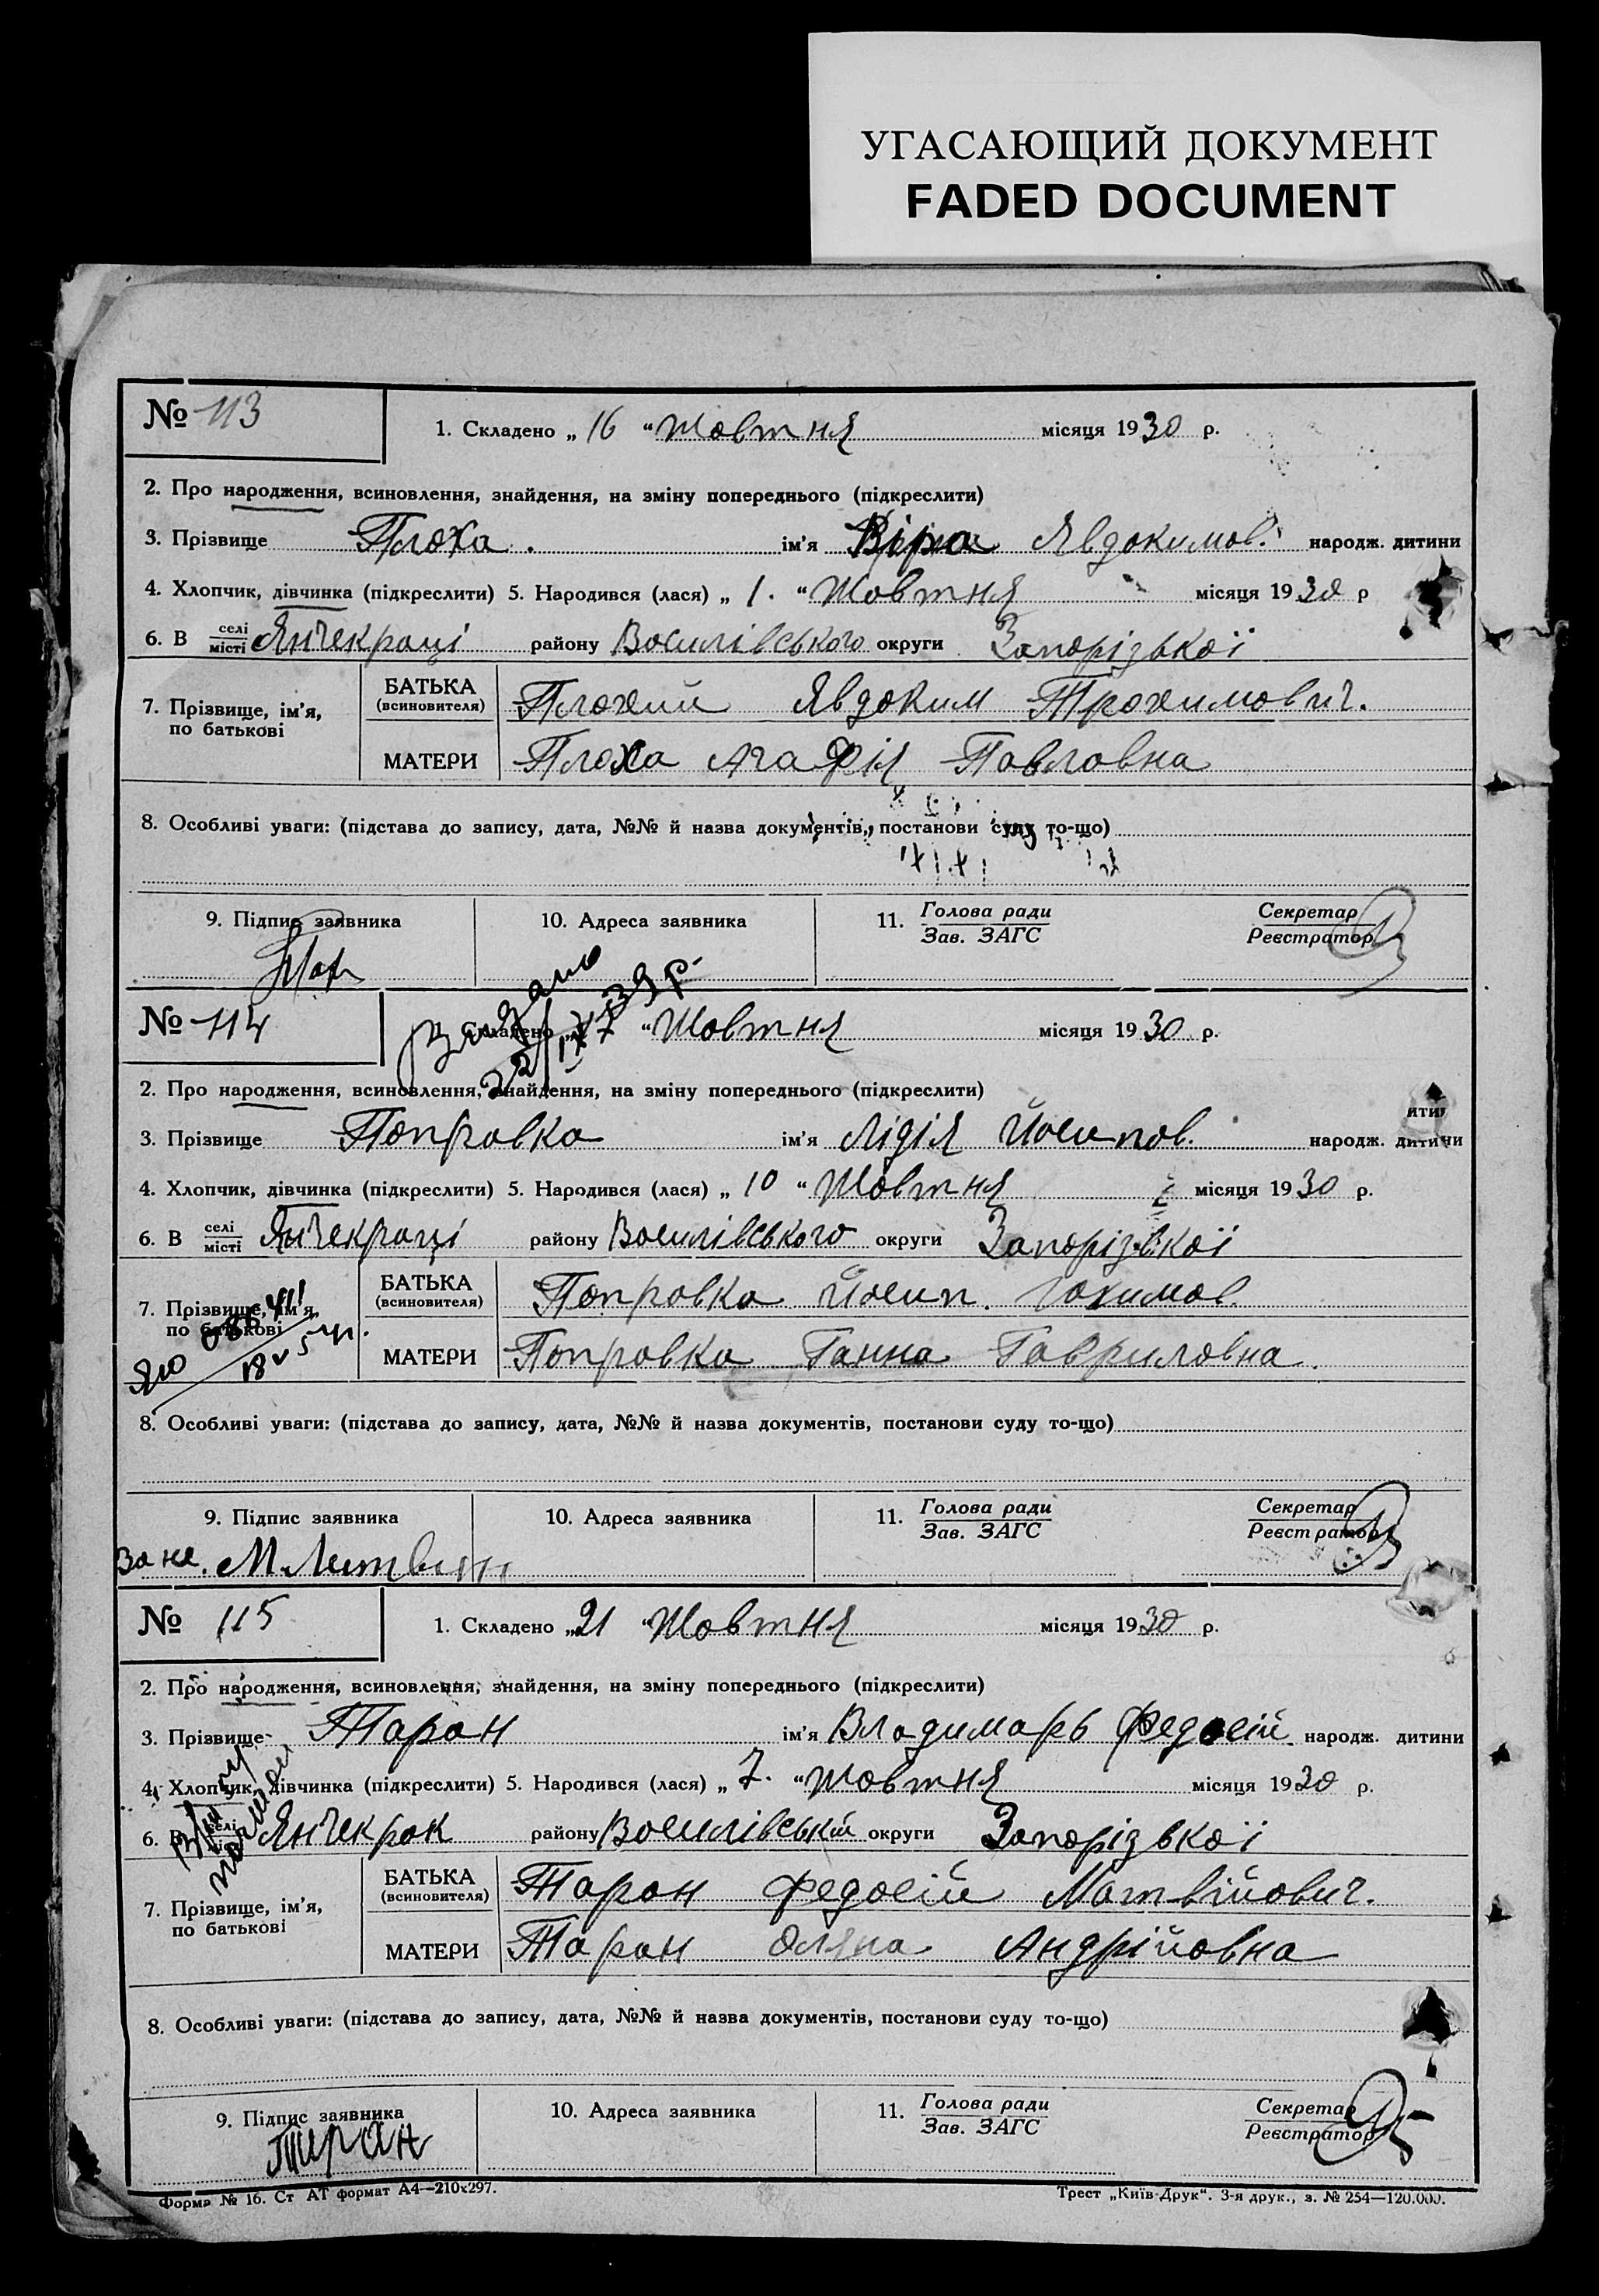 УГАСАЮЩИЙ ДОКУМЕНТ
FADED DOCUMENT
№ 113
1. Складено „ 16 “ Жовтня місяця 1930 р.
2. Про народження, всиновлення, знайдення, на зміну попереднього (підкреслити)
3. Прізвище Плоха. ім'я Віра Явдокимов. народж. дитини
4. Хлопчик, дівчинка (підкреслити) 5. Народився (лася) „ 1. “ Жовтня місяця 1930 р
6. В селі місті Янчекраці району Василівського округи Запорізької
7. Прізвище, ім'я, по батькові
БАТЬКА (всиновителя) Плохий Явдоким Трохимович.
МАТЕРИ Плоха Агафія Павловна
8. Особливі уваги: (підстава до запису, дата, №№ й назва документів, постанови суду то-що)
9. Підпис заявника
10. Адреса заявника
11. Голова ради Зав. ЗАГС
Секретар Реєстратор
№ 114
Складено „ “ Жовтня місяця 1930 р.
2. Про народження, всиновлення, знайдення, на зміну попереднього (підкреслити)
3. Прізвище Поправка ім'я Лідія Йосипов. народж. дитини
4. Хлопчик, дівчинка (підкреслити) 5. Народився (лася) „ 10 “ Жовтня місяця 1930 р.
6. В селі місті Янчекраці району Василівського округи Запорізької
7. Прізвище, ім'я, по батькові
БАТЬКА (всиновителя) Поправка Йосип.
МАТЕРИ Поправка Ганна Гавриловна.
8. Особливі уваги: (підстава до запису, дата, №№ й назва документів, постанови суду то-що)
9. Підпис заявника
10. Адреса заявника
11. Голова ради Зав. ЗАГС
Секретар Реєстратор
За не. М. Литвин
№ 115
1. Складено „ 21 “ Жовтня місяця 1930 р.
2. Про народження, всиновлення, знайдення, на зміну попереднього (підкреслити)
3. Прізвище Таран ім'я Владимарь Федосій. народж. дитини
4. Хлопчик, дівчинка (підкреслити) 5. Народився (лася) „ 7. “ Жовтня місяця 1930 р.
6. В селі Янчекрак району Василівській округи Запорізької
7. Прізвище, ім'я, по батькові
БАТЬКА (всиновителя) Таран Федосій Матвійович.
МАТЕРИ Таран Оляна Андрійовна
8. Особливі уваги: (підстава до запису, дата, №№ й назва документів, постанови суду то-що)
9. Підпис заявника
10. Адреса заявника
11. Голова ради Зав. ЗАГС
Секретар Реєстратор
Таран
Форма № 16. Ст АТ формат А4—210х297.
Трест „Київ-Друк“. 3-я друк., з. № 254—120.000.